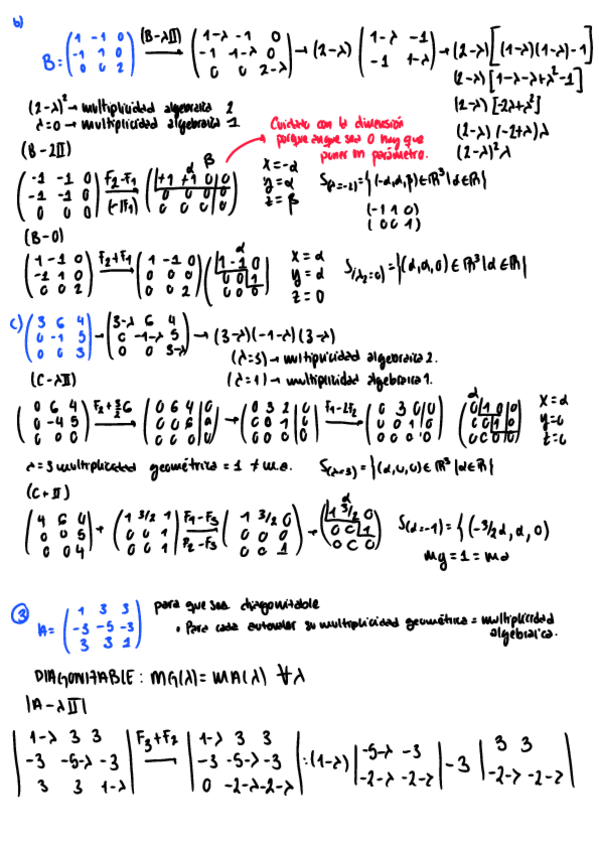 b)
B = (1 -1 0 / -1 1 0 / 0 0 2) (B-λII) → (1-λ -1 0 / -1 1-λ 0 / 0 0 2-λ) → (2-λ) (1-λ -1 / -1 1-λ) → (2-λ) [(1-λ)(1-λ)-1]
(2-λ) [1-λ-λ+λ²-1]
(2-λ) [-2λ+λ²]
(2-λ) (-2+λ)λ
(2-λ)² λ
(2-λ)² → multiplicidad algebraica 2
λ=0 → multiplicidad algebraica 1
Cuidado con la dimensión
porque aunque sea 0 hay que
poner un parámetro.
(B-2II)
(-1 -1 0 / -1 -1 0 / 0 0 0) F2-F1 (-1F1) → (+1 +1 0 0 / 0 0 0 0 / 0 0 0 0) α β x=-α y=α z=β S(λ=-2)={(-α,α,β)∈ℝ³ | α∈ℝ}
(-1 1 0)
(0 0 1)
(B-0)
(1 -1 0 / -1 1 0 / 0 0 2) F2+F1 → (1 -1 0 / 0 0 0 / 0 0 2) (1 -1 0 / 0 0 1 / 0 0 0) α x=α y=α z=0 S(λ2=0)={(α,α,0)∈ℝ³ | α∈ℝ}
c) (3 6 4 / 0 -1 5 / 0 0 3) → (3-λ 6 4 / 0 -1-λ 5 / 0 0 3-λ) → (3-λ)(-1-λ)(3-λ)
(λ=3) → multiplicidad algebraica 2.
(λ=1) → multiplicidad algebraica 1.
(C-λII)
(0 6 4 / 0 -4 5 / 0 0 0) → (0 6 4 0 / 0 0 0 / 0 0 0 0) → (0 3 2 0 / 0 0 1 0 / 0 0 0 0) F1-2F2 → (0 3 0 0 / 0 0 1 0 / 0 0 0 0) (0 1 0 0 / 0 0 1 0 / 0 0 0 0) α x=α y=0 z=0
λ=3 multiplicidad geométrica = 1 ≠ m.a. S(λ=3)={(α,0,0)∈ℝ³ | α∈ℝ}
(C+II)
(4 6 4 / 0 0 5 / 0 0 4) → (1 3/2 1 / 0 0 1 / 0 0 1) F1-F3 F2-F3 (1 3/2 0 / 0 0 0 / 0 0 1) → (1 3/2 0 / 0 0 1 / 0 0 0) α S(λ=-1)={(-3/2α, α, 0)
mg=1=ma
③ A= (1 3 3 / -3 -5 -3 / 3 3 1) para que sea diagonizable
• Para cada autovalor su multiplicidad geométrica = multiplicidad
algebraica.
DIAGONIZABLE: MG(λ)=MA(λ) ∀λ
|A-λII|
|1-λ 3 3 / -3 -5-λ -3 / 3 3 1-λ| F3+F2 → |1-λ 3 3 / -3 -5-λ -3 / 0 -2-λ -2-λ| : (1-λ) |-5-λ -3 / -2-λ -2-λ| -3 |3 3 / -2-λ -2-λ|